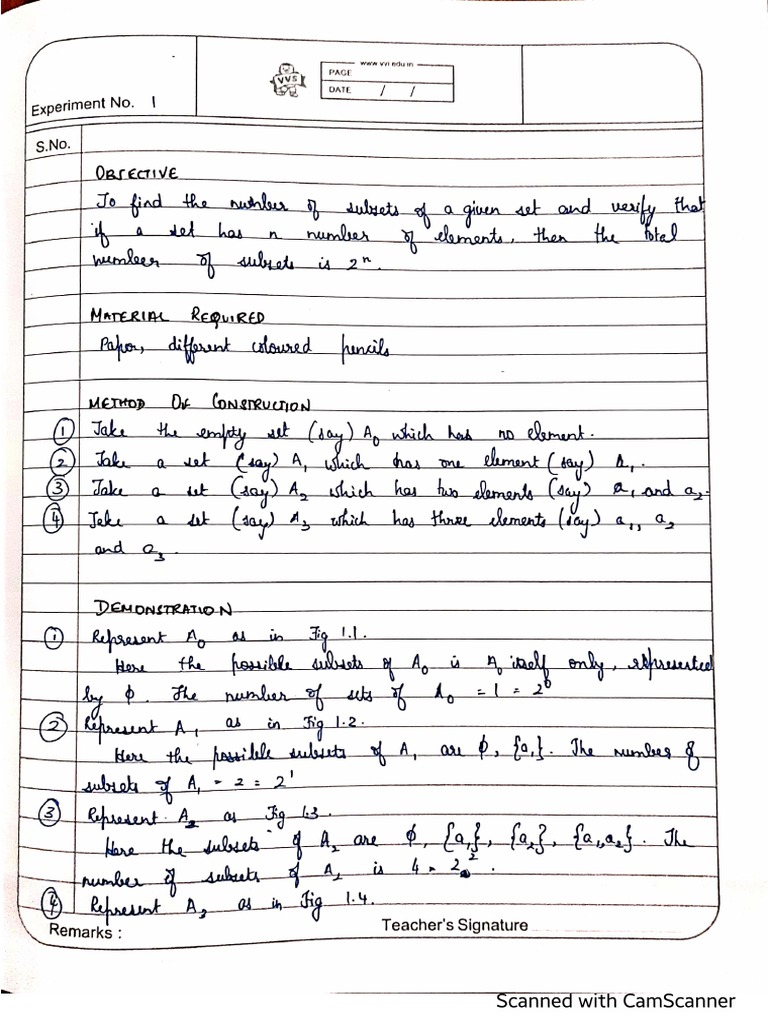 www vvi edu in
PAGE
VVS
DATE / /
Experiment No. 1
S.No.
OBJECTIVE
To find the number of subsets of a given set and verify that
if a set has n number of elements, then the total
number of subsets is 2ⁿ.
MATERIAL REQUIRED
Paper, different coloured pencils
METHOD OF CONSTRUCTION
① Take the empty set (say) A₀ which has no element.
② Take a set (say) A₁ which has one element (say) a₁.
③ Take a set (say) A₂ which has two elements (say) a₁ and a₂.
④ Take a set (say) A₃ which has three elements (say) a₁, a₂
and a₃.
DEMONSTRATION
① Represent A₀ as in Fig 1.1.
Here the possible subsets of A₀ is A₀ itself only, represented
by ϕ. The number of sets of A₀ = 1 = 2⁰
② Represent A₁ as in Fig 1.2.
Here the possible subsets of A₁ are ϕ, {a₁}. The number of
subsets of A₁ = 2 = 2¹
③ Represent A₂ as Fig 1.3.
Here the subsets of A₂ are ϕ, {a₁}, {a₂}, {a₁,a₂}. The
number of subsets of A₂ is 4 = 2².
④ Represent A₃ as in Fig 1.4.
Remarks : Teacher's Signature
Scanned with CamScanner